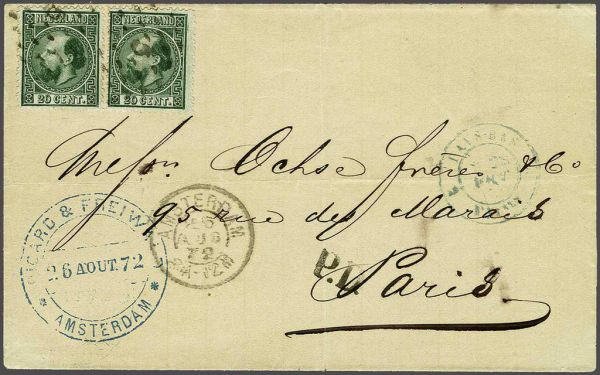 NEDERLAND NEDERLAND
20 CENT. 20 CENT.
Messrs. Ochse frères & Co
95 rue des Marais
Paris
P.D.
RICARD & FREIW
26 AOUT. 72
* AMSTERDAM *
AMSTERDAM
26
AUG
72
PAYS-BAS